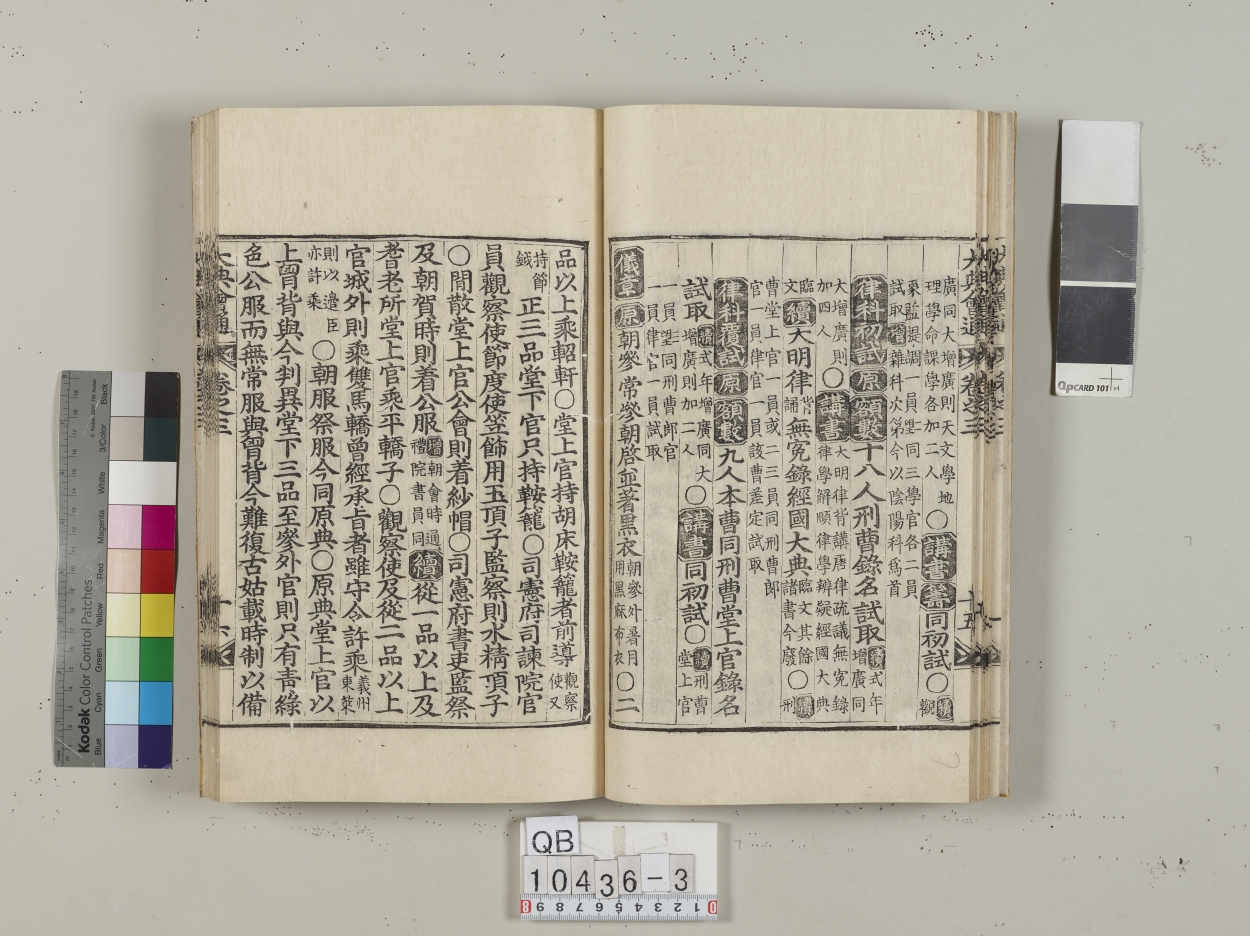 廣同大增廣則天文學地
理學命課學各加二人〇講書算同初試〇續觀
象監提調一員望同三學官各二員
試取增雜科次第今以陰陽科爲首
律科初試原額數十八人刑曹錄名試取續式年
增廣同
大增廣則
加四人〇講書大明律背講唐律疏議無冤錄
律學解頤律學辨疑經國大典
臨文續大明律背誦無冤錄經國大典臨文其餘
諸書今廢〇續刑
曹堂上官一員或二三員同刑曹郎
官一員律官一員該曹差定試取
律科覆試原額數九人本曹同刑曹堂上官錄名
試取續式年增廣同大
增廣則加二人〇講書同初試〇續刑曹
堂上官
一員望同刑曹郎官
一員律官一員試取
儀章原朝參常參朝啓並著黑衣朝參外暑月
用黑麻布衣〇二
大典會通 卷之三 十五
品以上乘軺軒〇堂上官持胡床鞍籠者前導觀察
使又
持節
鉞正三品堂下官只持鞍籠〇司憲府司諫院官
員觀察使節度使笠飾用玉頂子監察則水精頂子
〇閒散堂上官公會則着紗帽〇司憲府書吏監祭
及朝賀時則着公服增朝會時通
禮院書員同續從一品以上及
耆老所堂上官乘平轎子〇觀察使及從二品以上
官城外則乘雙馬轎曾經承旨者雖守令許乘義州
東萊
則以邊臣
亦許乘〇朝服祭服今同原典〇原典堂上官以
上胷背與今判異堂下三品至參外官則只有靑綠
色公服而無常服與胷背今難復古姑載時制以備
大典會通 卷之三 十六
Kodak Color Control Patches
Blue Cyan Green Yellow Red Magenta White 3/Color Black
QPCARD 101 v4
QB
10436-3
0 1 2 3 4 5 6 7 8 9